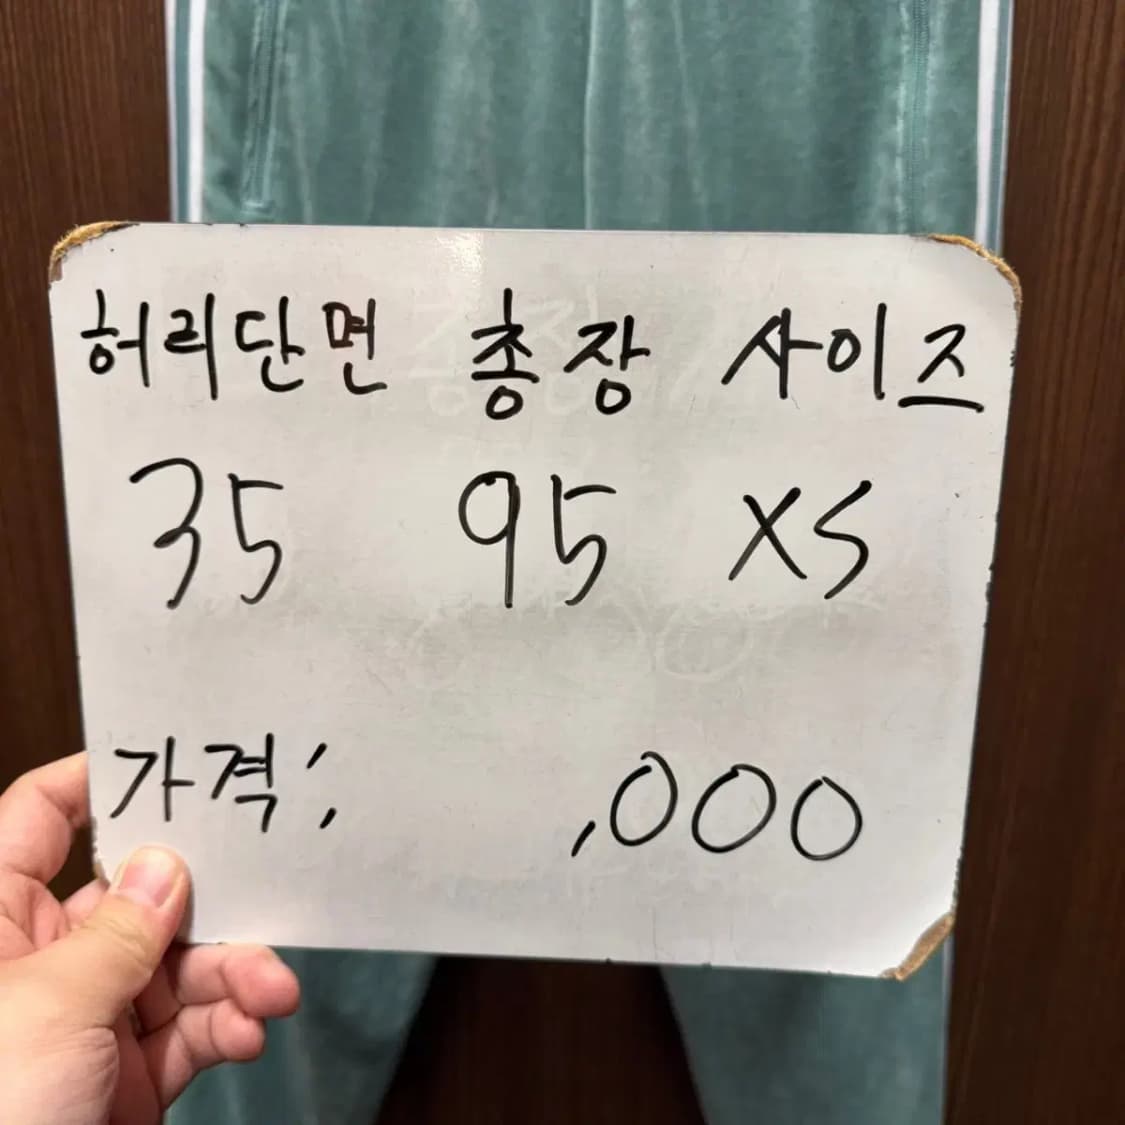 허리단면 총장 사이즈
35 95 XS
가격: ,000